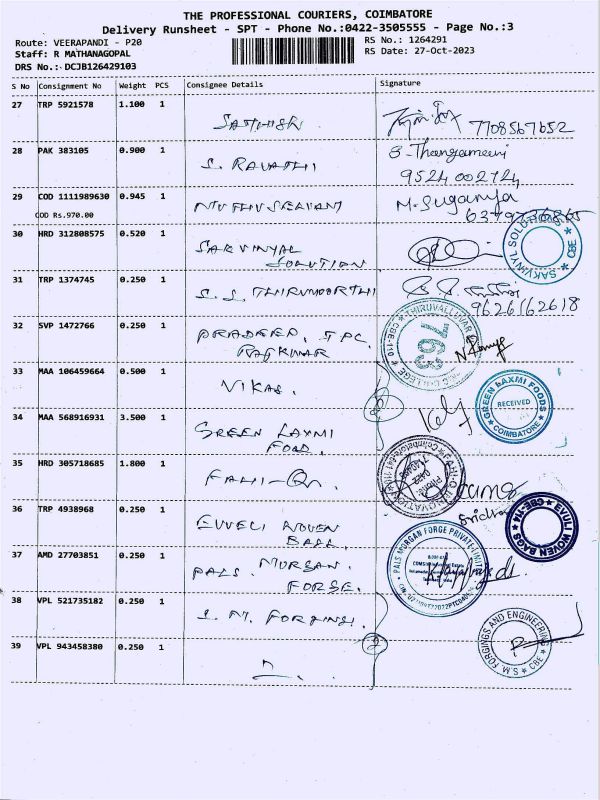 THE PROFESSIONAL COURIERS, COIMBATORE
Delivery Runsheet - SPT - Phone No.:0422-3505555 - Page No.:3
Route: VEERAPANDI - P20
RS No.: 1264291
Staff: R MATHANAGOPAL
RS Date: 27-Oct-2023
DRS No.:- DCJB126429103
S No Consignment No Weight PCS Consignee Details Signature
27 TRP 5921578 1.100 1 SATHISH 7708567652
28 PAK 383105 0.900 1 S. RAVATHI
9524 002724
29 COD 1111989630 0.945 1 MUTHUSELVAM M. Suganya
COD Rs.970.00
30 HRD 312808575 0.520 1 SAKVINYAL
SOLUTION
SAKVINYL SOLUTIONS CBE
31 TRP 1374745 0.250 1 S.S. THIRUMOORTHI
9626162618
32 SVP 1472766 0.250 1 PRADEEP. TPC.
RAJKUMAR
THIRUVALLUVAR
COLLEGE
CBE-110
163
33 MAA 106459664 0.500 1 VIKAS.
34 MAA 568916931 3.500 1 GREEN LAXMI
FOOD.
GREEN LAXMI FOODS
RECEIVED
COIMBATORE
35 HRD 305718685 1.800 1
36 TRP 4938968 0.250 1 EUVELI WOVEN
BAGS.
EVULI WOVEN BAGS CBE-114
37 AMD 27703851 0.250 1 PALS. MORGAN.
FORGE.
PALS MORGAN FORGE PRIVATE LIMITED
38 VPL 521735182 0.250 1 S. M. FORGING.
39 VPL 943458380 0.250 1
FORGINGS AND ENGINEERING
M.S CBE